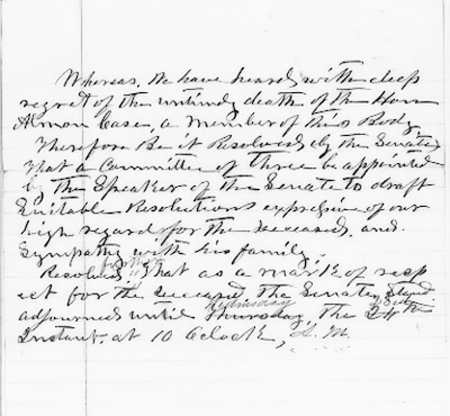 Whereas, We have heard with deep
regret of the untimely death of the Hon
Almon Case, a member of this Body,
Therefore Be it Resolved by the Senate
that a Committee of three be appointed
by the Speaker of the Senate to draft
Suitable Resolutions expressive of our
high regard for the deceased and
Sympathy with his family.
further
Resolved, That as a mark of resp
ect for the deceased the Senate stand
Wednesday
adjourned until Thursday the 24th
Instant. at 10 Oclock, A. M.